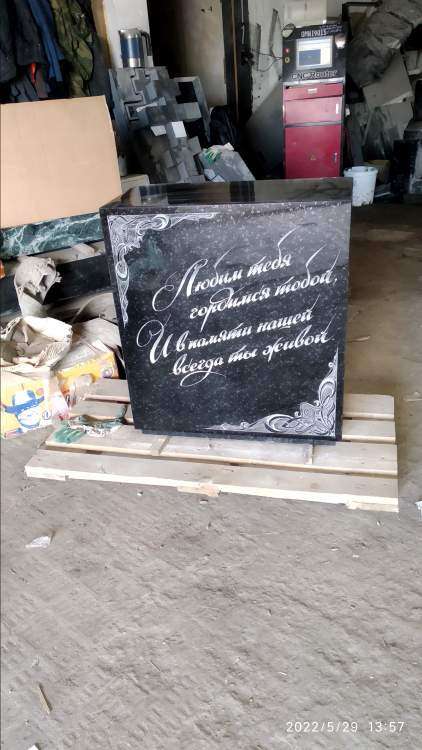 CNC Router
Любим тебя
гордимся тобой,
И в памяти нашей
всегда ты живой
2022/5/29 13:57